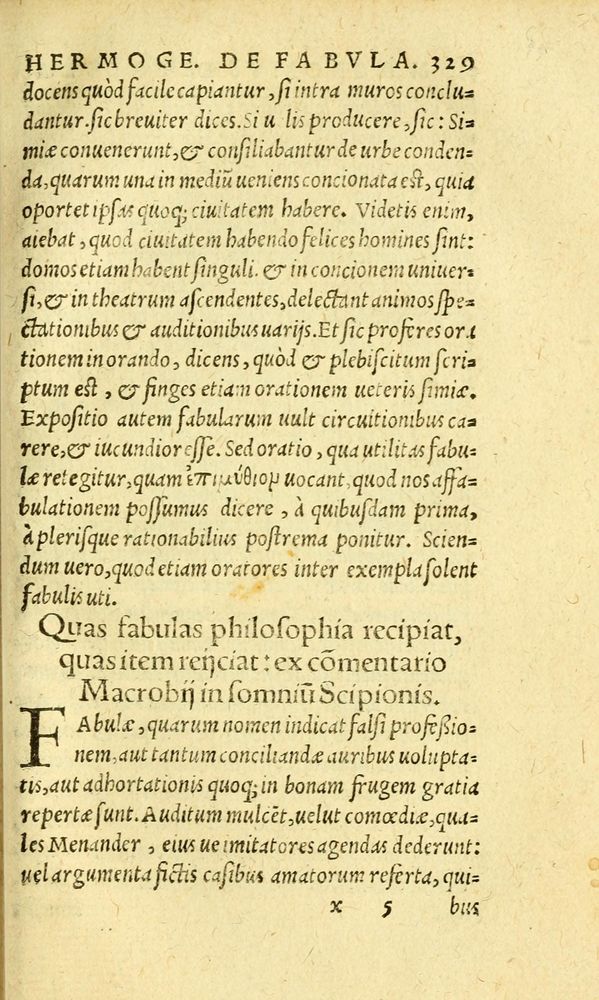 HERMOGE. DE FABVLA. 329
docens quòd facile capiantur, si intra muros conclu=
dantur. sic breuiter dices. Si u lis producere, sic: Si=
miæ conuenerunt, & consiliabantur de urbe conden=
da, quarum una in mediũ ueniens concionata est, quia
oportet ipsas quoq; ciuitatem habere. Videtis enim,
aiebat, quod ciuitatem habendo felices homines sint:
domos etiam habent singuli. & in concionem uniuer=
si, & in theatrum ascendentes, delectant animos spe=
ctationibus & auditionibus uarijs. Et sic proferes ora
tionem in orando, dicens, quòd & plebiscitum scri=
ptum est, & finges etiam orationem ueteris simiæ.
Expositio autem fabularum uult circuitionibus ca=
rere, & iucundior esse. Sed oratio, qua utilitas fabu=
læ retegitur, quam ἐπιμύθιομ uocant, quod nos affa=
bulationem possumus dicere, à quibusdam prima,
à plerisque rationabilius postrema ponitur. Scien=
dum uero, quod etiam oratores inter exempla solent
fabulis uti.
Quas fabulas philosophia recipiat,
quas item reijciat: ex cõmentario
Macrobij in somniũ Scipionis.
FAbulæ, quarum nomen indicat falsi professio=
nem, aut tantum conciliandæ auribus uolupta=
tis, aut adhortationis quoq; in bonam frugem gratia
repertæ sunt. Auditum mulcẽt, uelut comœdiæ, qua=
les Menander, eius ue imitatores agendas dederunt:
uel argumenta fictis casibus amatorum referta, qui=
x 5 bus